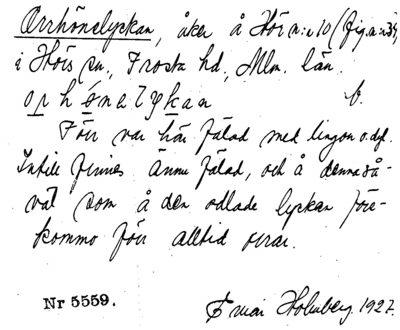 Orrhönelyckan, åker å Hör n:o 10 (fig. n:o 34,
i Hörs sn., Frosta hd, Mlm. län.
b.
Förr var här fälad med lingon o. dyl.
Intill finnes ännu fälad, och å denna så-
väl som å den odlade lyckan före-
kommo förr alltid orrar.
Nr 5559.
Holmberg. 1927.